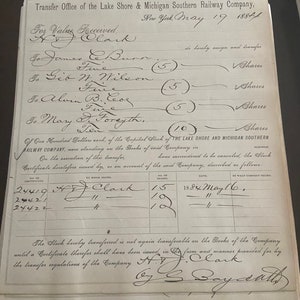 Transfer Office of the Lake Shore & Michigan Southern Railway Company,
New York May 19 1884
For Value Received
H & J Clark
do hereby assign and transfer
To James C Burr
Five (5) Shares
To Geo W. Wilson
Five (5) Shares
To Alvan B. Coe
Five (5) Shares
To Mary J. Forsyth
Ten (10) Shares
Of One Hundred Dollars each of the Capital Stock of THE LAKE SHORE AND MICHIGAN SOUTHERN
RAILWAY COMPANY, now standing on the Books of said Company in
On the execution of the transfer, have consented to be cancelled, the Stock
Certificate
24419 H & J Clark 15 1884 May 16
24421 " 10 "
24422 " "
The Stock hereby transferred is not again transferable on the Books of the Company
until a Certificate therefor shall have been issued, in the form and manner provided for by
the transfer regulations of the Company.
H & J Clark
Boyd atty